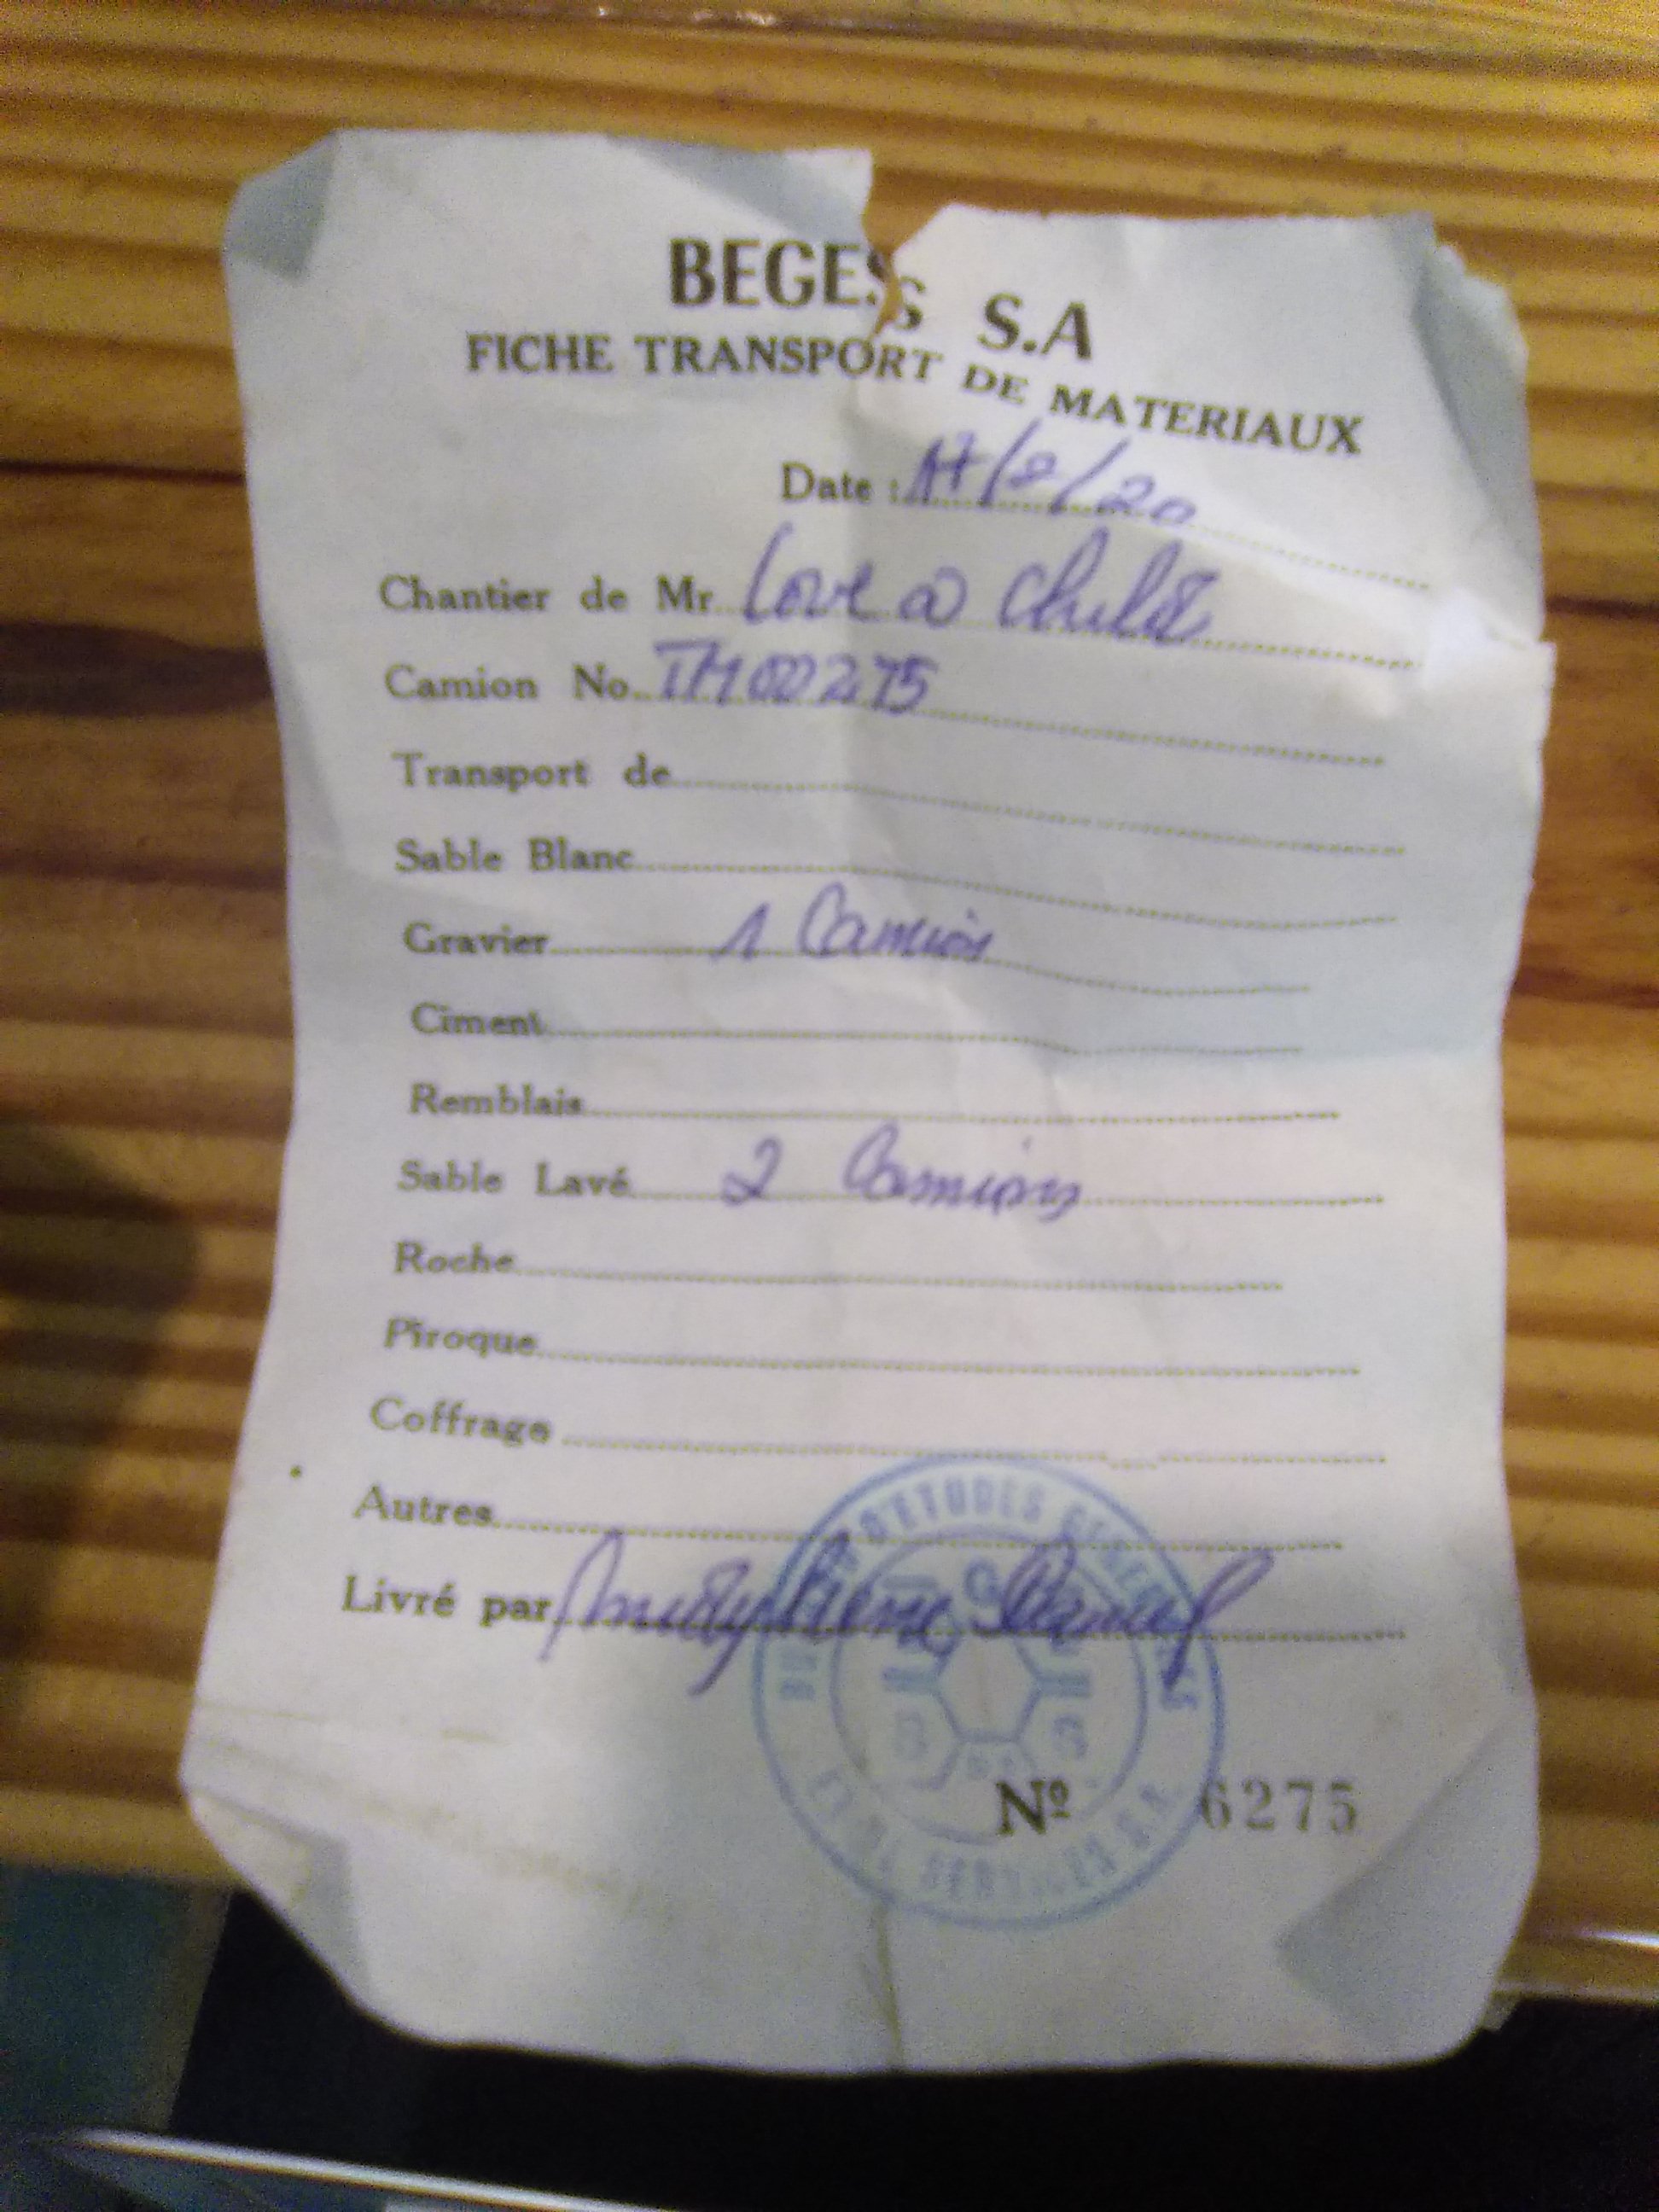 BEGES S.A
FICHE TRANSPORT DE MATERIAUX
Date : 17/2/20
Chantier de Mr Love a Child
Camion No. TM00275
Transport de
Sable Blanc
Gravier 1 Camion
Ciment
Remblais
Sable Lavé 2 Camions
Roche
Piroque
Coffrage
Autres
Livré par
D'ETUDES
ET DE SERVICES S.A.
Nº 6275